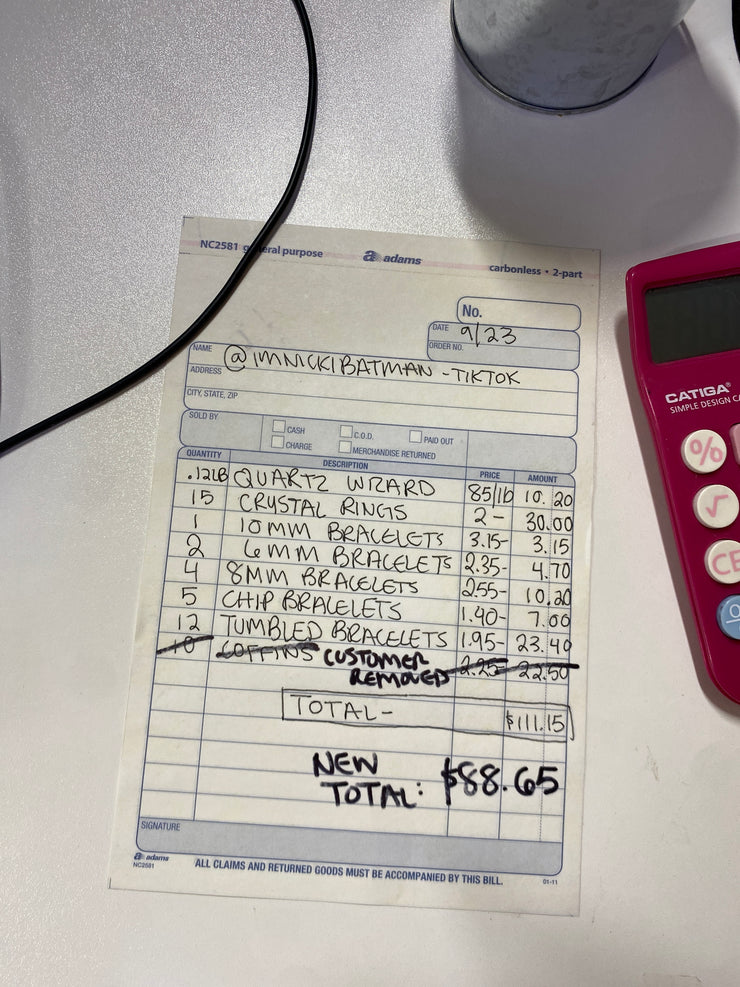 NC2581 general purpose
adams
carbonless • 2-part
No.
DATE 9/23
ORDER NO.
NAME @IMNICKIBATMAN - TIKTOK
ADDRESS
CITY, STATE, ZIP
SOLD BY
CASH C.O.D. PAID OUT
CHARGE MERCHANDISE RETURNED
QUANTITY DESCRIPTION PRICE AMOUNT
.12LB QUARTZ WIZARD 85/lb 10.20
15 CRYSTAL RINGS 2- 30.00
1 10MM BRACELETS 3.15- 3.15
2 6MM BRACELETS 2.35- 4.70
4 8MM BRACELETS 255- 10.20
5 CHIP BRACELETS 1.40- 7.00
12 TUMBLED BRACELETS 1.95- 23.40
10 COFFINS CUSTOMER 2.25 22.50
REMOVED
TOTAL- $111.15
NEW
TOTAL: $88.65
SIGNATURE
adams
NC2581
ALL CLAIMS AND RETURNED GOODS MUST BE ACCOMPANIED BY THIS BILL.
01-11
CATIGA®
SIMPLE DESIGN
%
√
CE